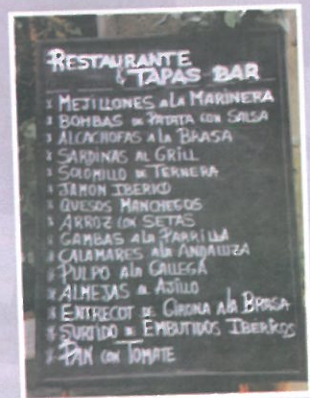 RESTAURANTE
& TAPAS BAR
* MEJILLONES a la MARINERA
* BOMBAS DE PATATA CON SALSA
* ALCACHOFAS A la BRASA
* SARDINAS AL GRILL
* SOLOMILLO DE TERNERA
* JAMON IBERICO
* QUESOS MANCHEGOS
* ARROZ CON SETAS
* GAMBAS A la PARRILLA
* CALAMARES A la ANDALUZA
* PULPO A la GALLEGA
* ALMEJAS AL AJILLO
* ENTRECOT DE GIRONA A la BRASA
* SURTIDO DE EMBUTIDOS IBERICOS
* PAN CON TOMATE